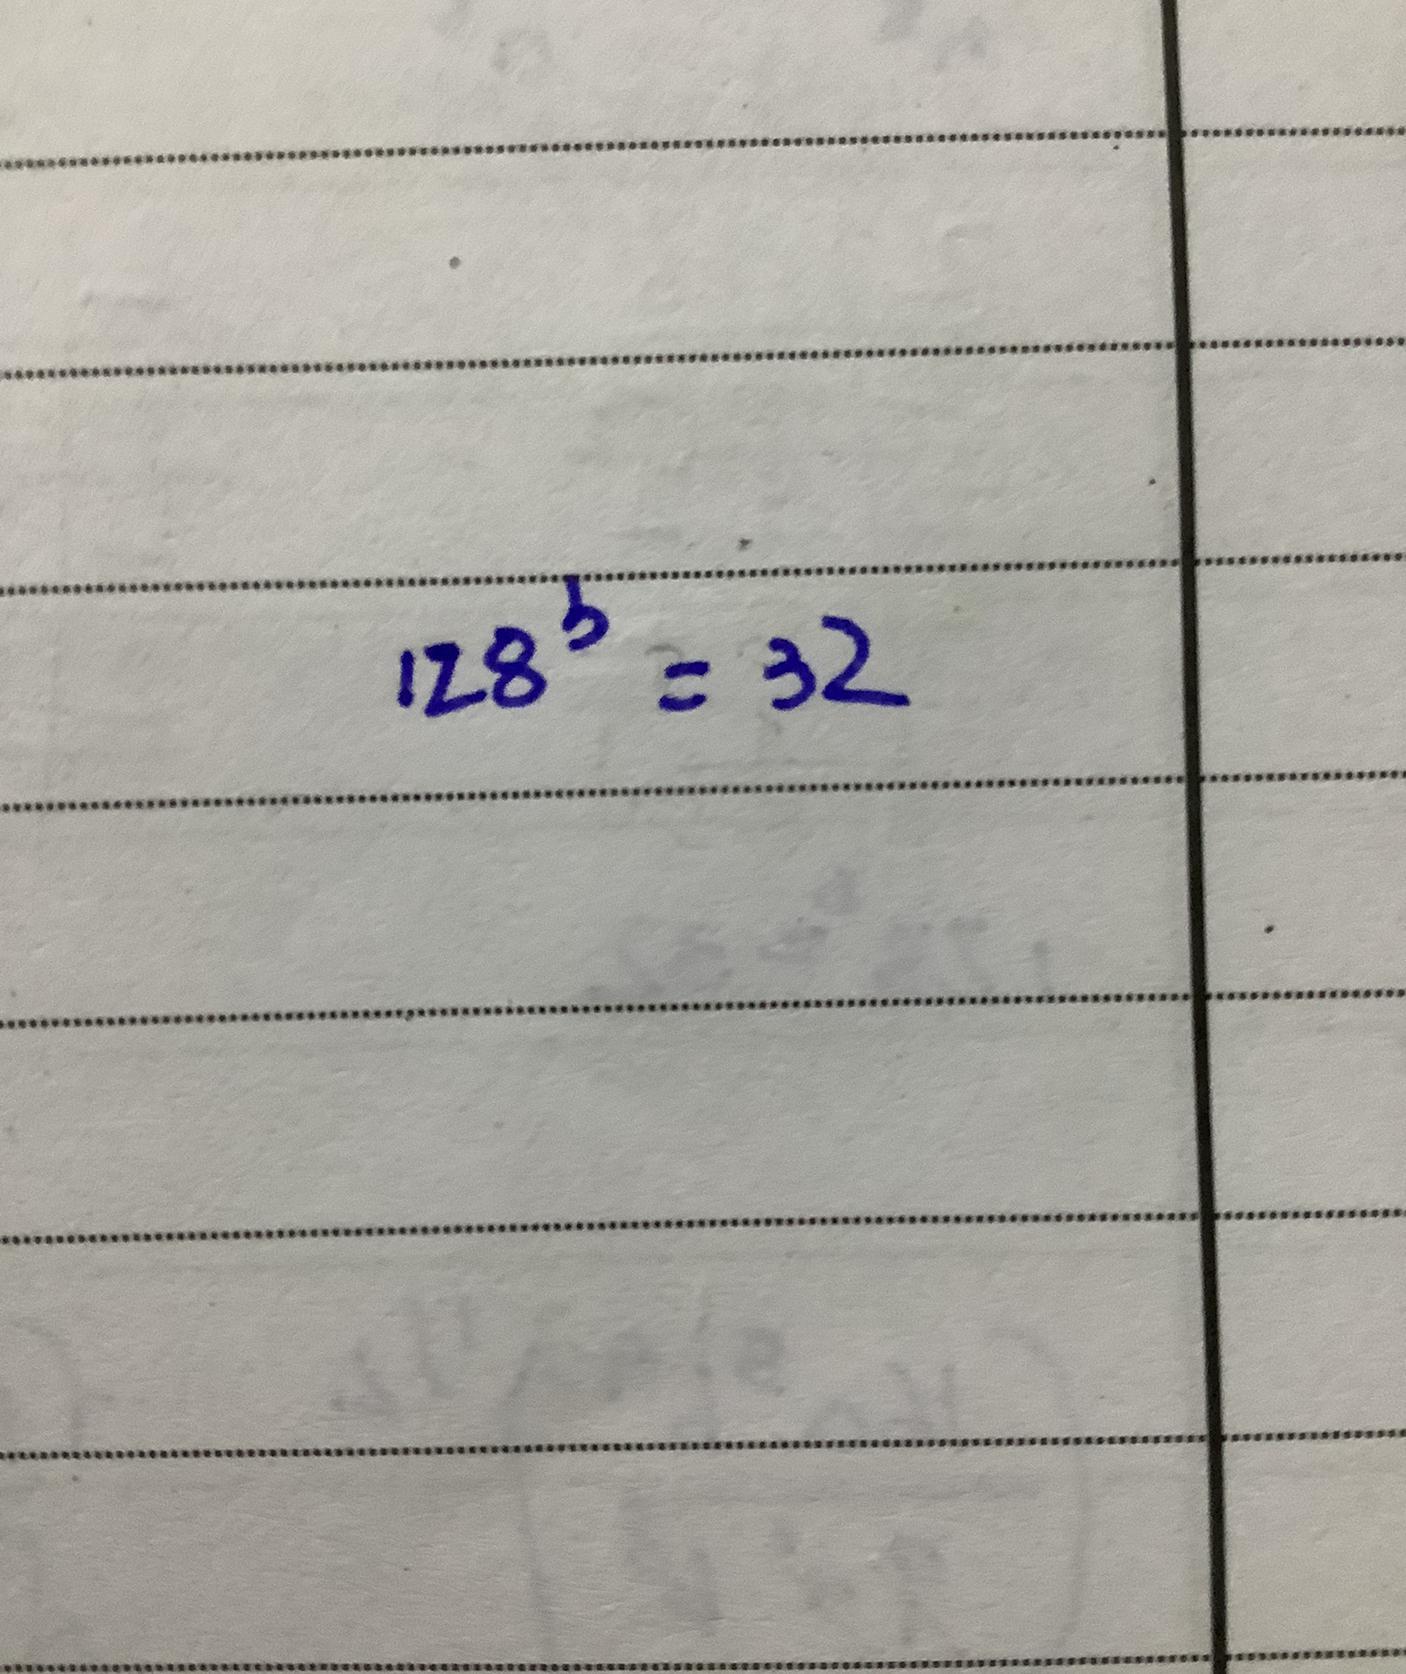 128ᵇ = 32